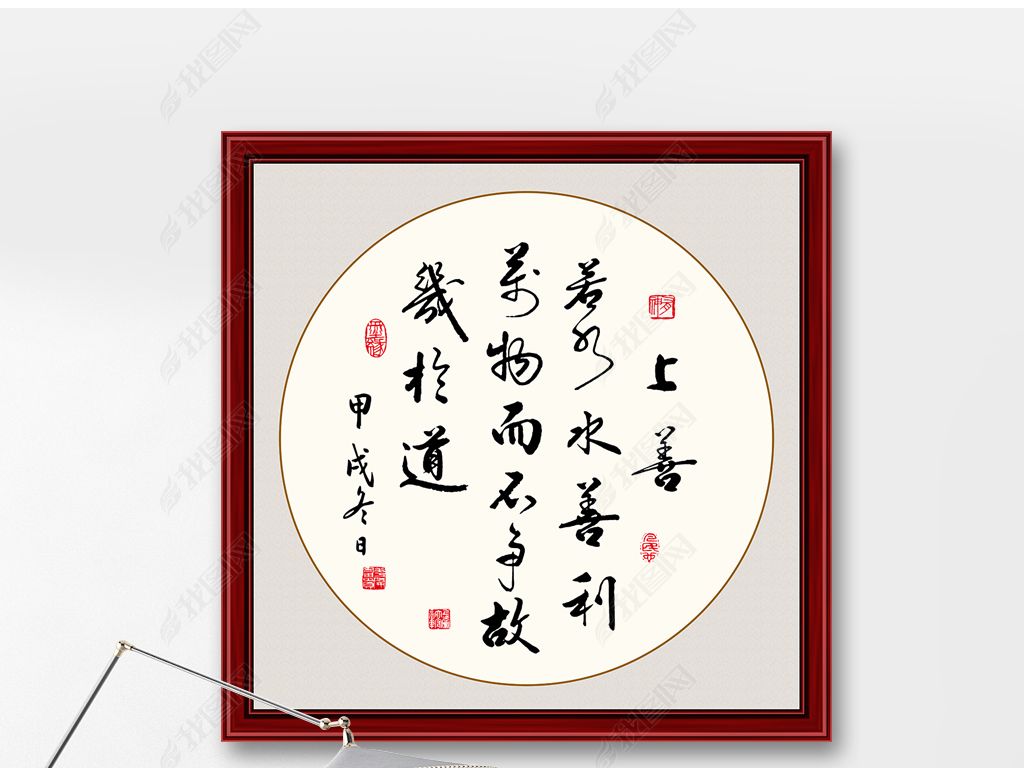 上善
若水水善利
萬物而不争故
幾於道
甲戌冬日
我图网